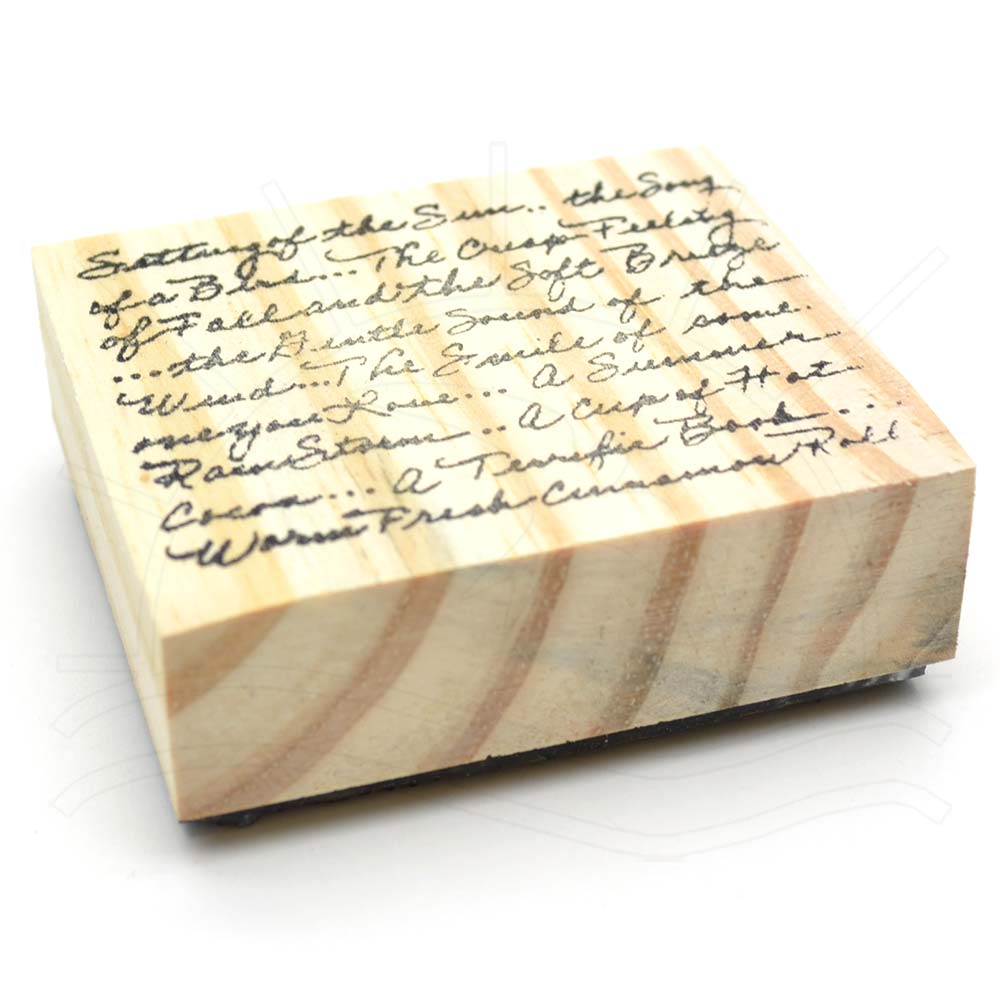 Setting of the Sun.. the Song
of a Bird... The Crisp Feeling
of Fall and the Soft Breeze
...the Gentle Sound of the
Wind...The Smile of some
one you Love... A Summer
Rain Storm.. A Cup of Hot
Cocoa... A Terrific Book ...
Warm Fresh Cinnamon Roll